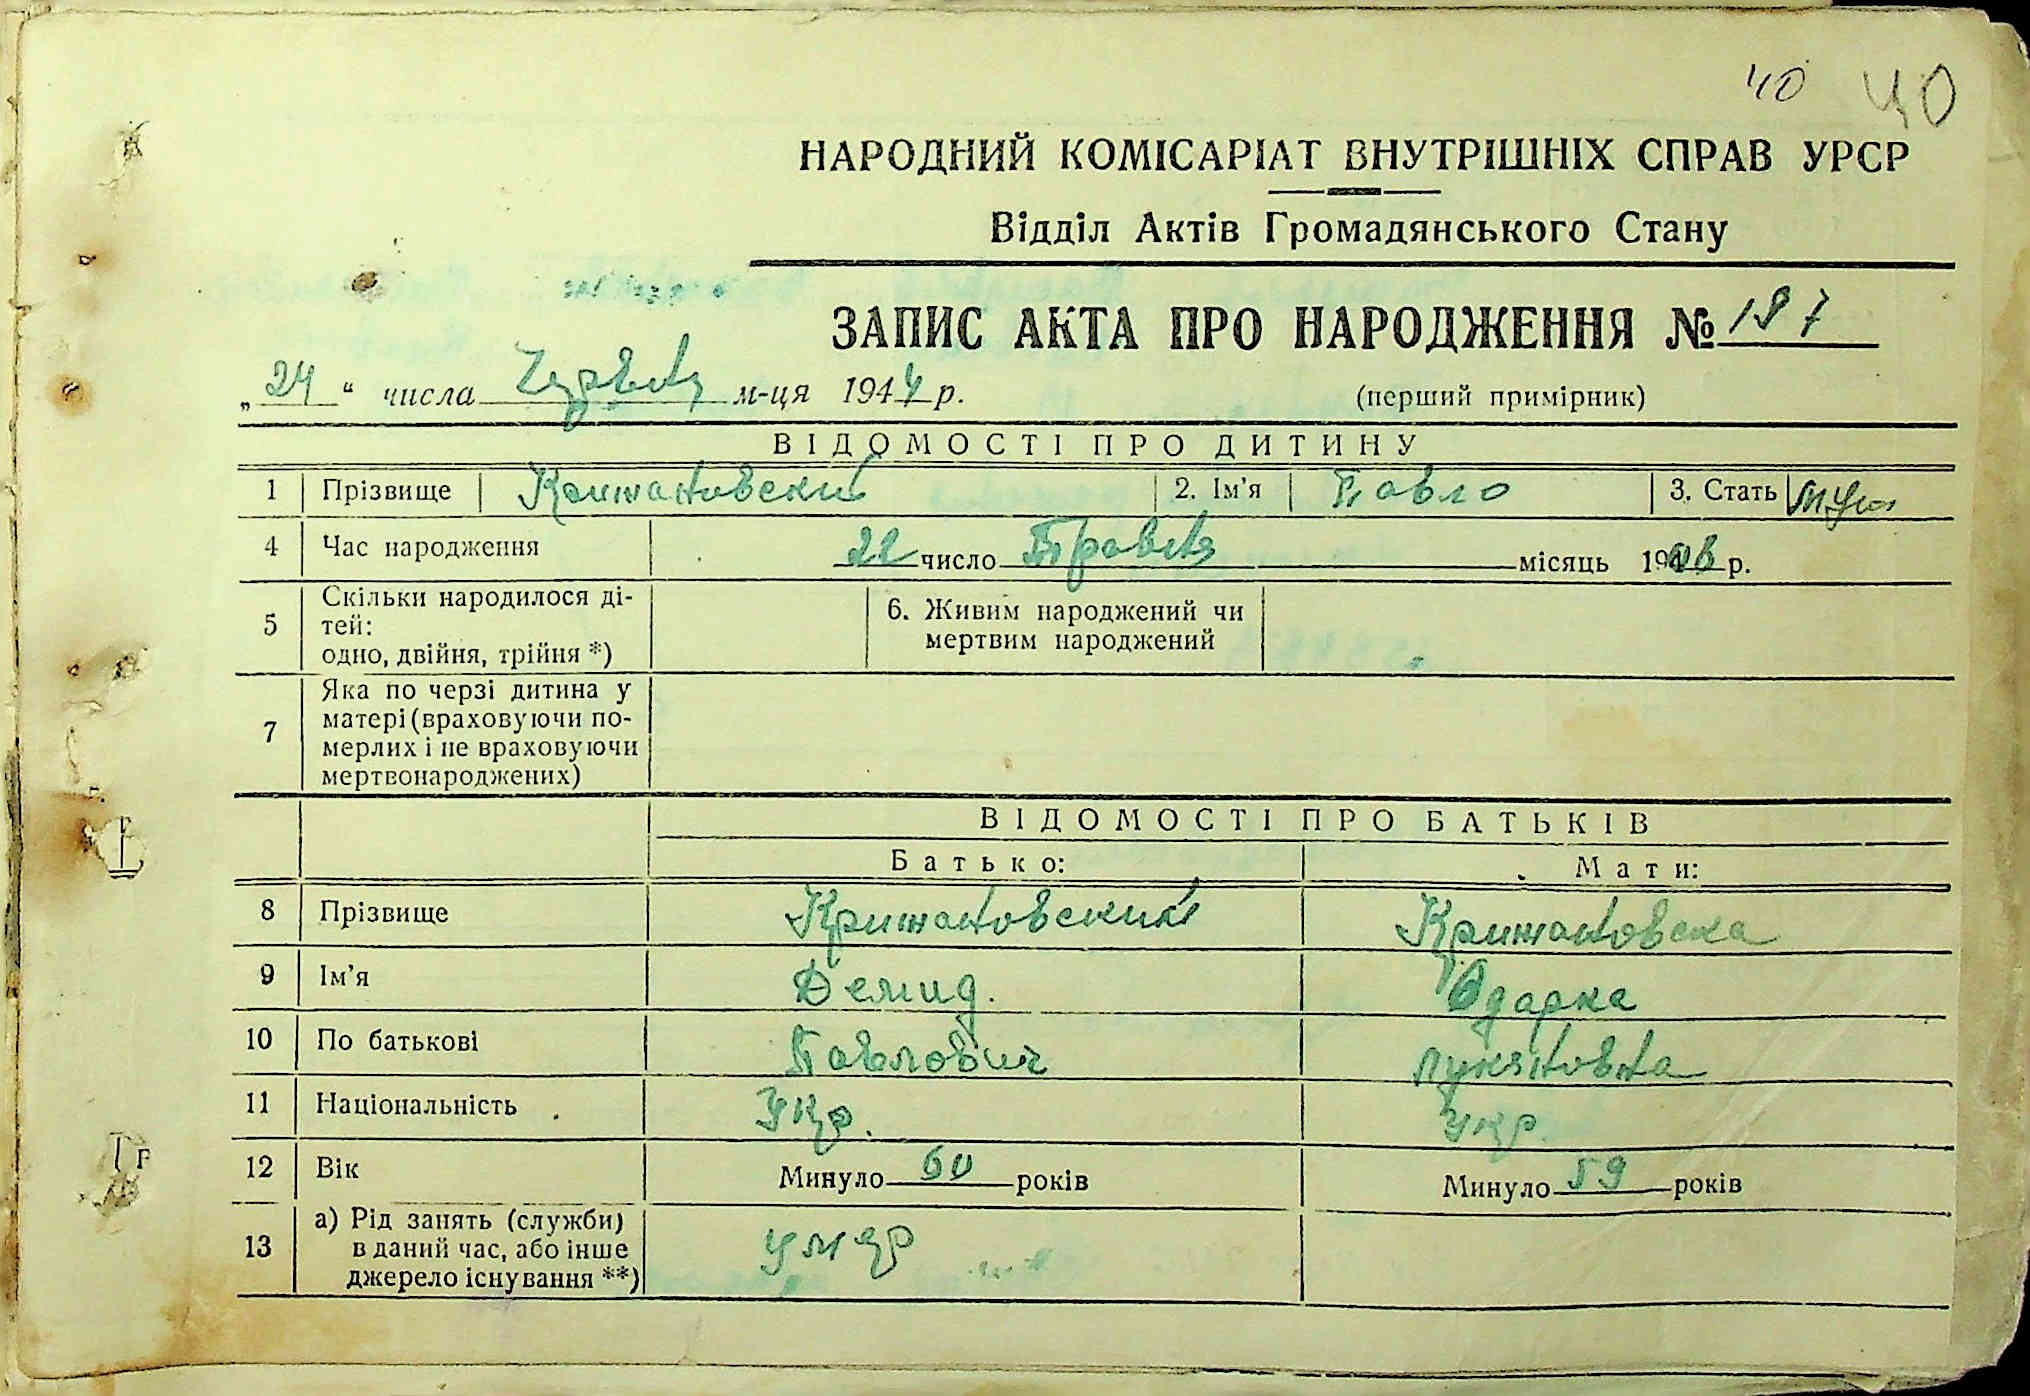 40 40
НАРОДНИЙ КОМІСАРІАТ ВНУТРІШНІХ СПРАВ УРСР
Відділ Актів Громадянського Стану
ЗАПИС АКТА ПРО НАРОДЖЕННЯ № 187
„24“ числа Червня м-ця 1944 р. (перший примірник)
ВІДОМОСТІ ПРО ДИТИНУ
1 Прізвище Крижановський 2. Ім'я Павло 3. Стать муж
4 Час народження 22 число Травня місяць 19 р.
5 Скільки народилося ді-
тей:
одно, двійня, трійня *) 6. Живим народжений чи
мертвим народжений
7 Яка по черзі дитина у
матері (враховуючи по-
мерлих і не враховуючи
мертвонароджених)
ВІДОМОСТІ ПРО БАТЬКІВ
Батько: Мати:
8 Прізвище Крижановський Крижановска
9 Ім'я Демид. Одарка
10 По батькові Павлович Лукяновна
11 Національність Укр. Укр.
12 Вік Минуло 60 років Минуло 59 років
13 а) Рід занять (служби)
в даний час, або інше
джерело існування **) умер